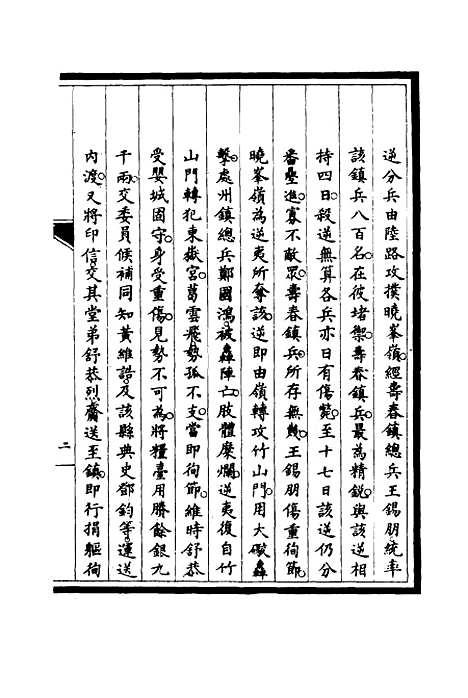 逆分兵由陸路攻撲曉峯嶺。經壽春鎮總兵王錫朋統率
該鎮兵八百名。在彼堵禦。壽春鎮兵。最為精銳。與該逆相
持四日。殺逆無算。各兵亦日有傷斃。至十七日該逆仍分
番壘進。寡不敵眾。壽春鎮兵。所存無幾。王錫朋傷重徇節。
曉峯嶺為逆夷所奪。該逆即由嶺轉攻竹山門。用大礮轟
擊。處州鎮總兵鄭國鴻。被轟陣亡。肢體糜爛。逆夷復自竹
山門轉犯東嶽宮。葛雲飛勢孤不支。當即徇節。維時舒恭
受嬰城固守。身受重傷。見勢不可為。將糧臺用賸餘銀九
千兩。交委員候補同知黃維誥。及該縣典史鄧鈞等。運送
內渡。又將印信。交其堂弟舒恭烈。齎送至鎮。即行捐軀徇
二